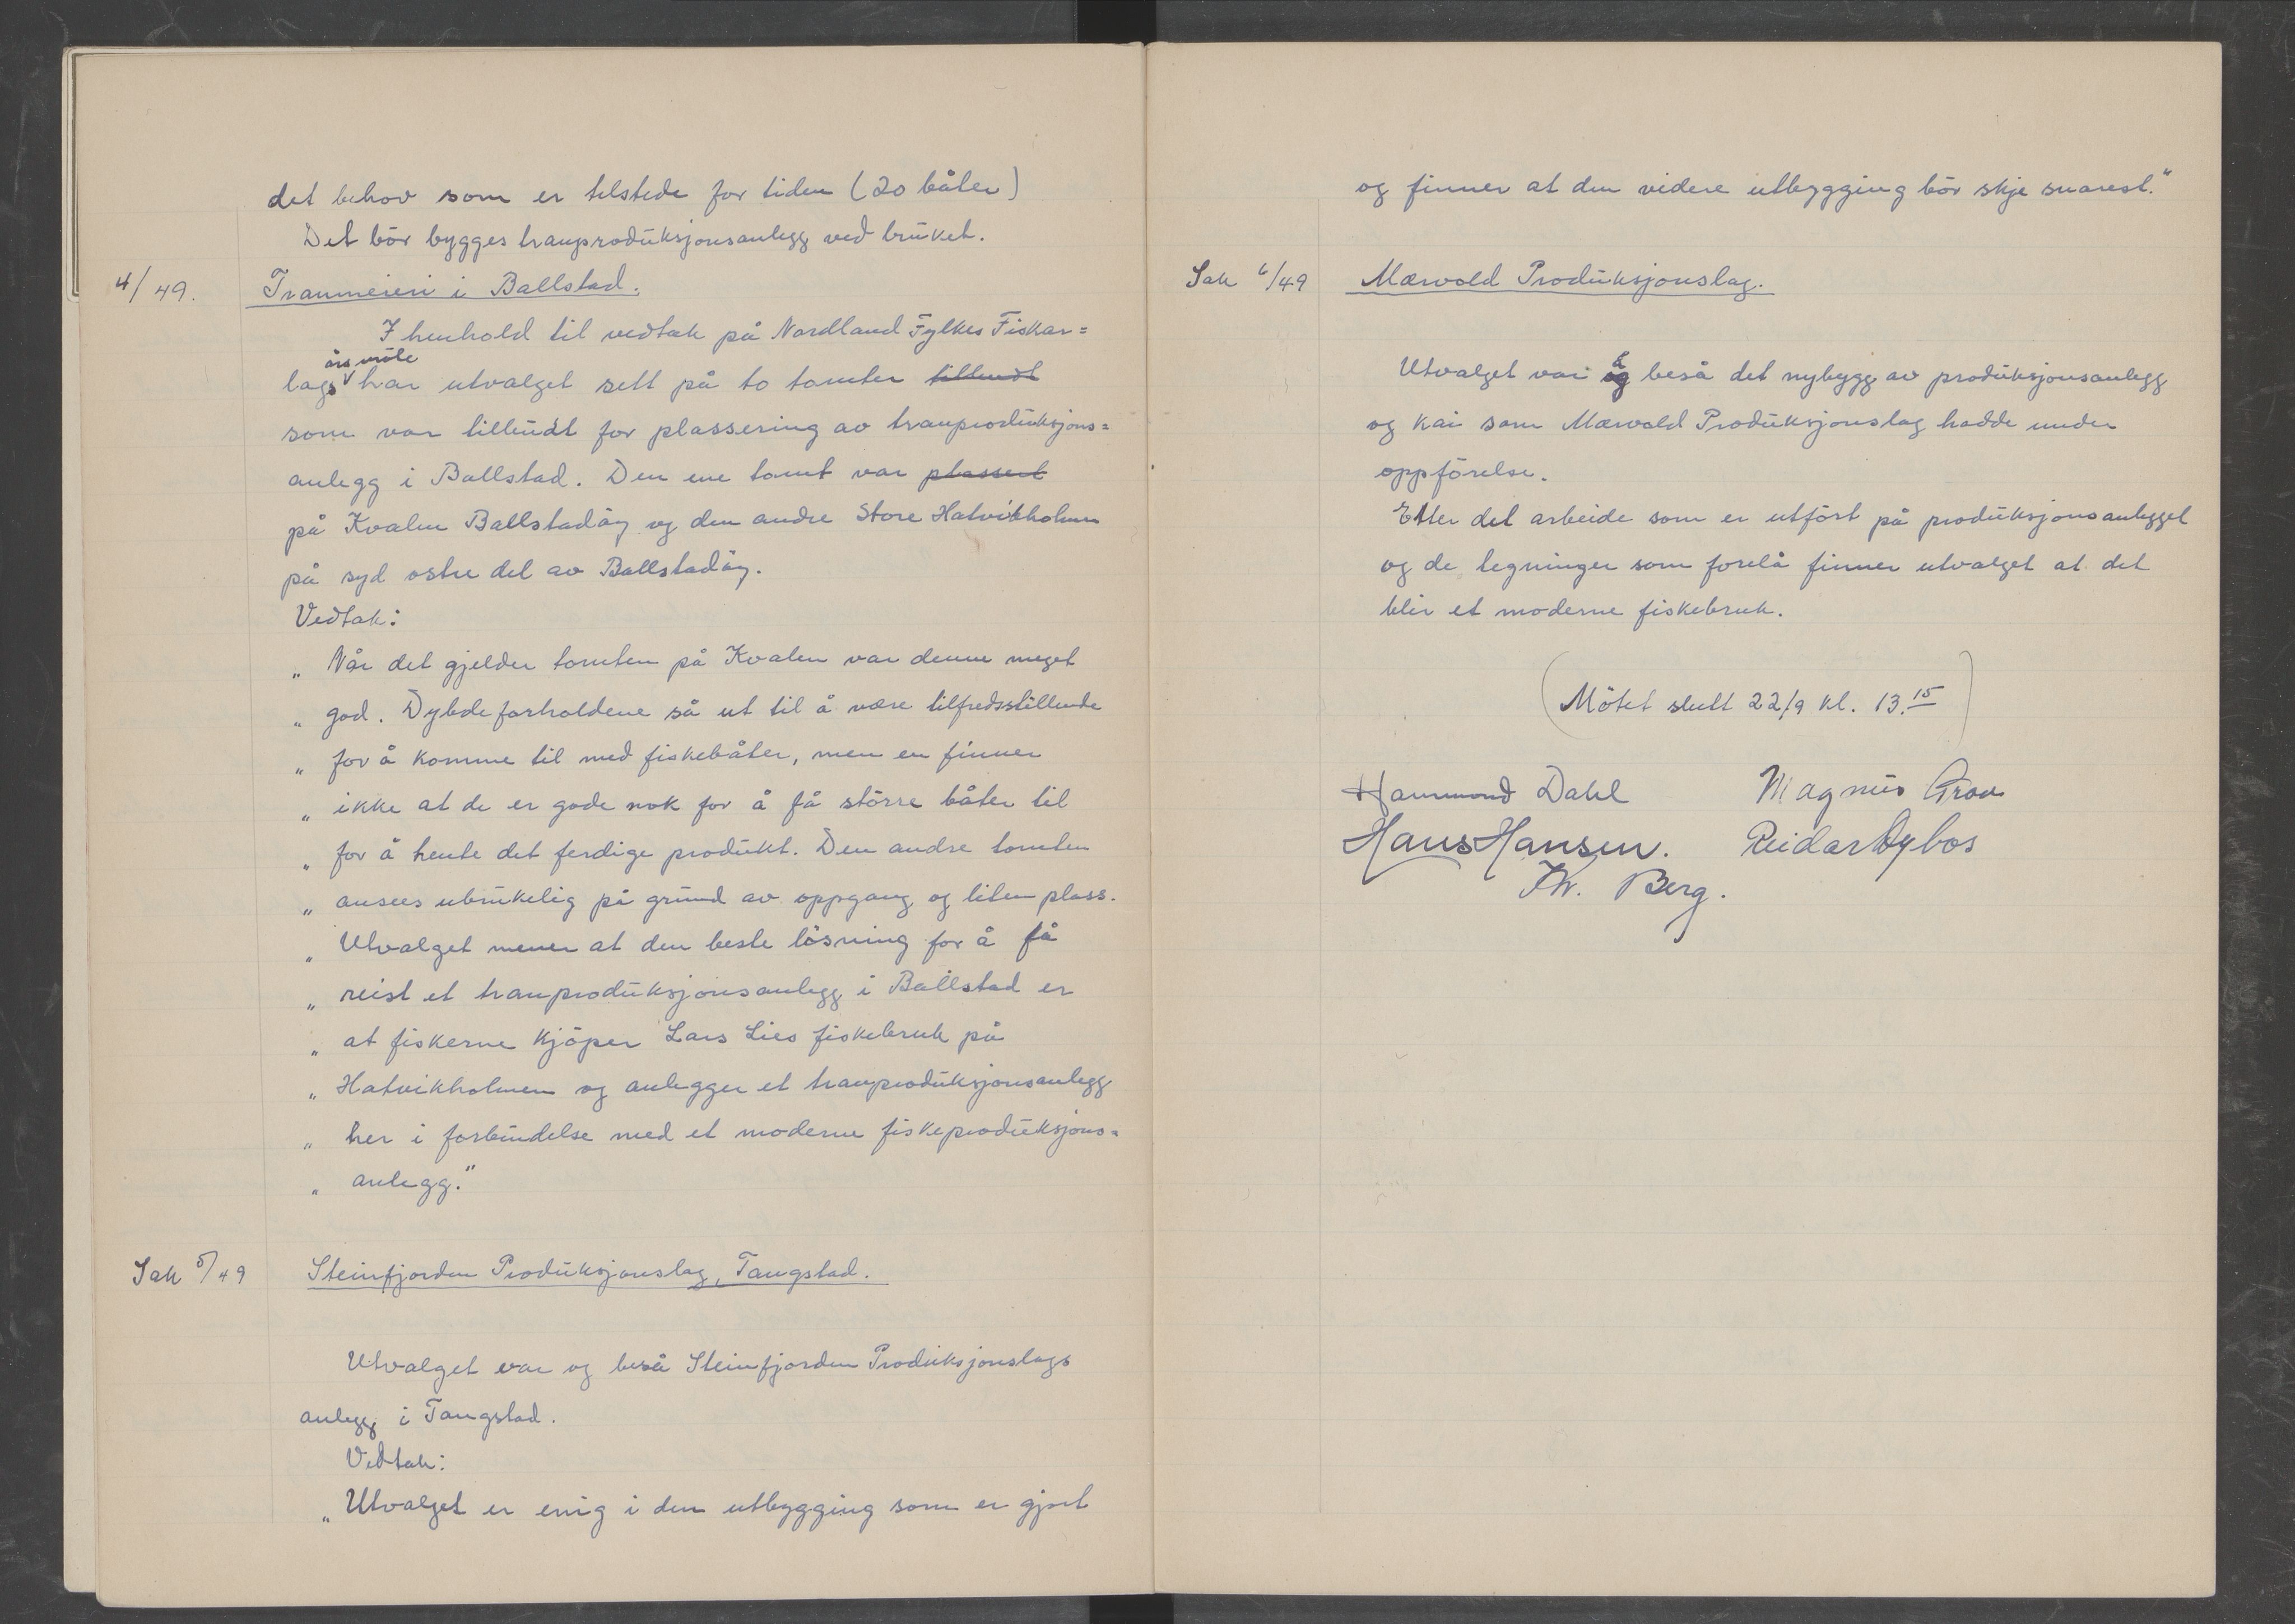 det behov som er tilstede for tiden (20 båter)
Det bör bygges tranproduksjonsanlegg ved bruket.
4/49. Tranmeieri i Ballstad.
I henhold til vedtak på Nordland Fylkes Fiskar=
årsmöte
lags har utvalget sett på to tomter tilbudt
som var tilbudt for plassering av tranproduksjons=
anlegg i Ballstad. Den ene tomt var plassert
på Kvalen Ballstadöy og den andre Store Hatvikholmen
på syd ostre del av Ballstadöy.
Vedtak:
„ Når det gjelder tomten på Kvalen var denne meget
„ god. Dybdeforholdene så ut til å være tilfredsstillende
„ for å komme til med fiskebåter, men en finner
„ ikke at de er gode nok for å få större båter til
„ for å hente det ferdige produkt. Den andre tomten
„ ansees ubrukelig på grund av oppgang og liten plass.
„ Utvalget mener at den beste lösning for å få
„ reist et tranproduksjonsanlegg i Ballstad er
„ at fiskerne kjöper Lars Lies fiskebruk på
„ Hatvikholmen og anlegger et tranproduksjonsanlegg
„ her i forbindelse med et moderne fiskeproduksjons=
„ anlegg."
Sak 5/49 Steinfjorden Produksjonslag, Tangstad.
Utvalget var og beså Steinfjorden Produksjonslags
anlegg i Tangstad.
Vedtak:
„Utvalget er enig i den utbygging som er gjort
og finner at den videre utbygging bör skje snarest."
Sak 6/49 Mærvold Produksjonslag.
Utvalget var og beså det nybygg av produksjonsanlegg
og kai som Mærvold Produksjonslag hadde under
oppförelse.
Etter det arbeide som er utfört på produksjonsanlegget
og de tegninger som forelå finner utvalget at det
blir et moderne fiskebruk.
(Mötet slutt 22/9 kl. 13.15)
Hammond Dahl Magnus Grav
Hans Hansen. Reidar Dybos
Kr. Berg.